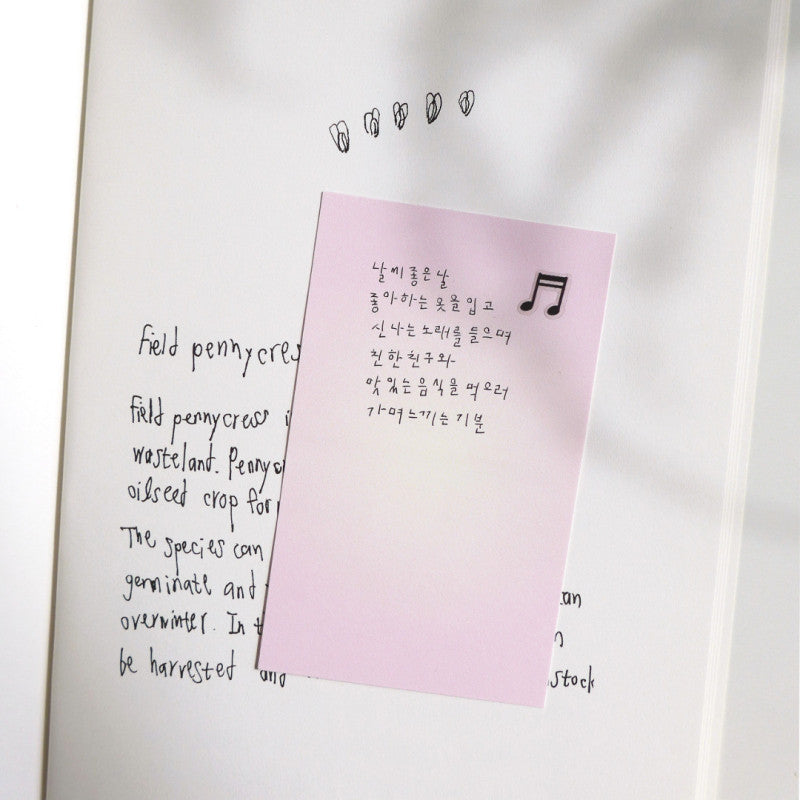 Field pennycres
Field pennycress i
wasteland. Pennyc
oilseed crop for
The species can
germinate and
overwinter. In t
be harvested and
날씨 좋은 날
좋아하는 옷을 입고
신나는 노래를 들으며
친한 친구와
맛있는 음식을 먹으러
가며 느끼는 기분
an
n
stock